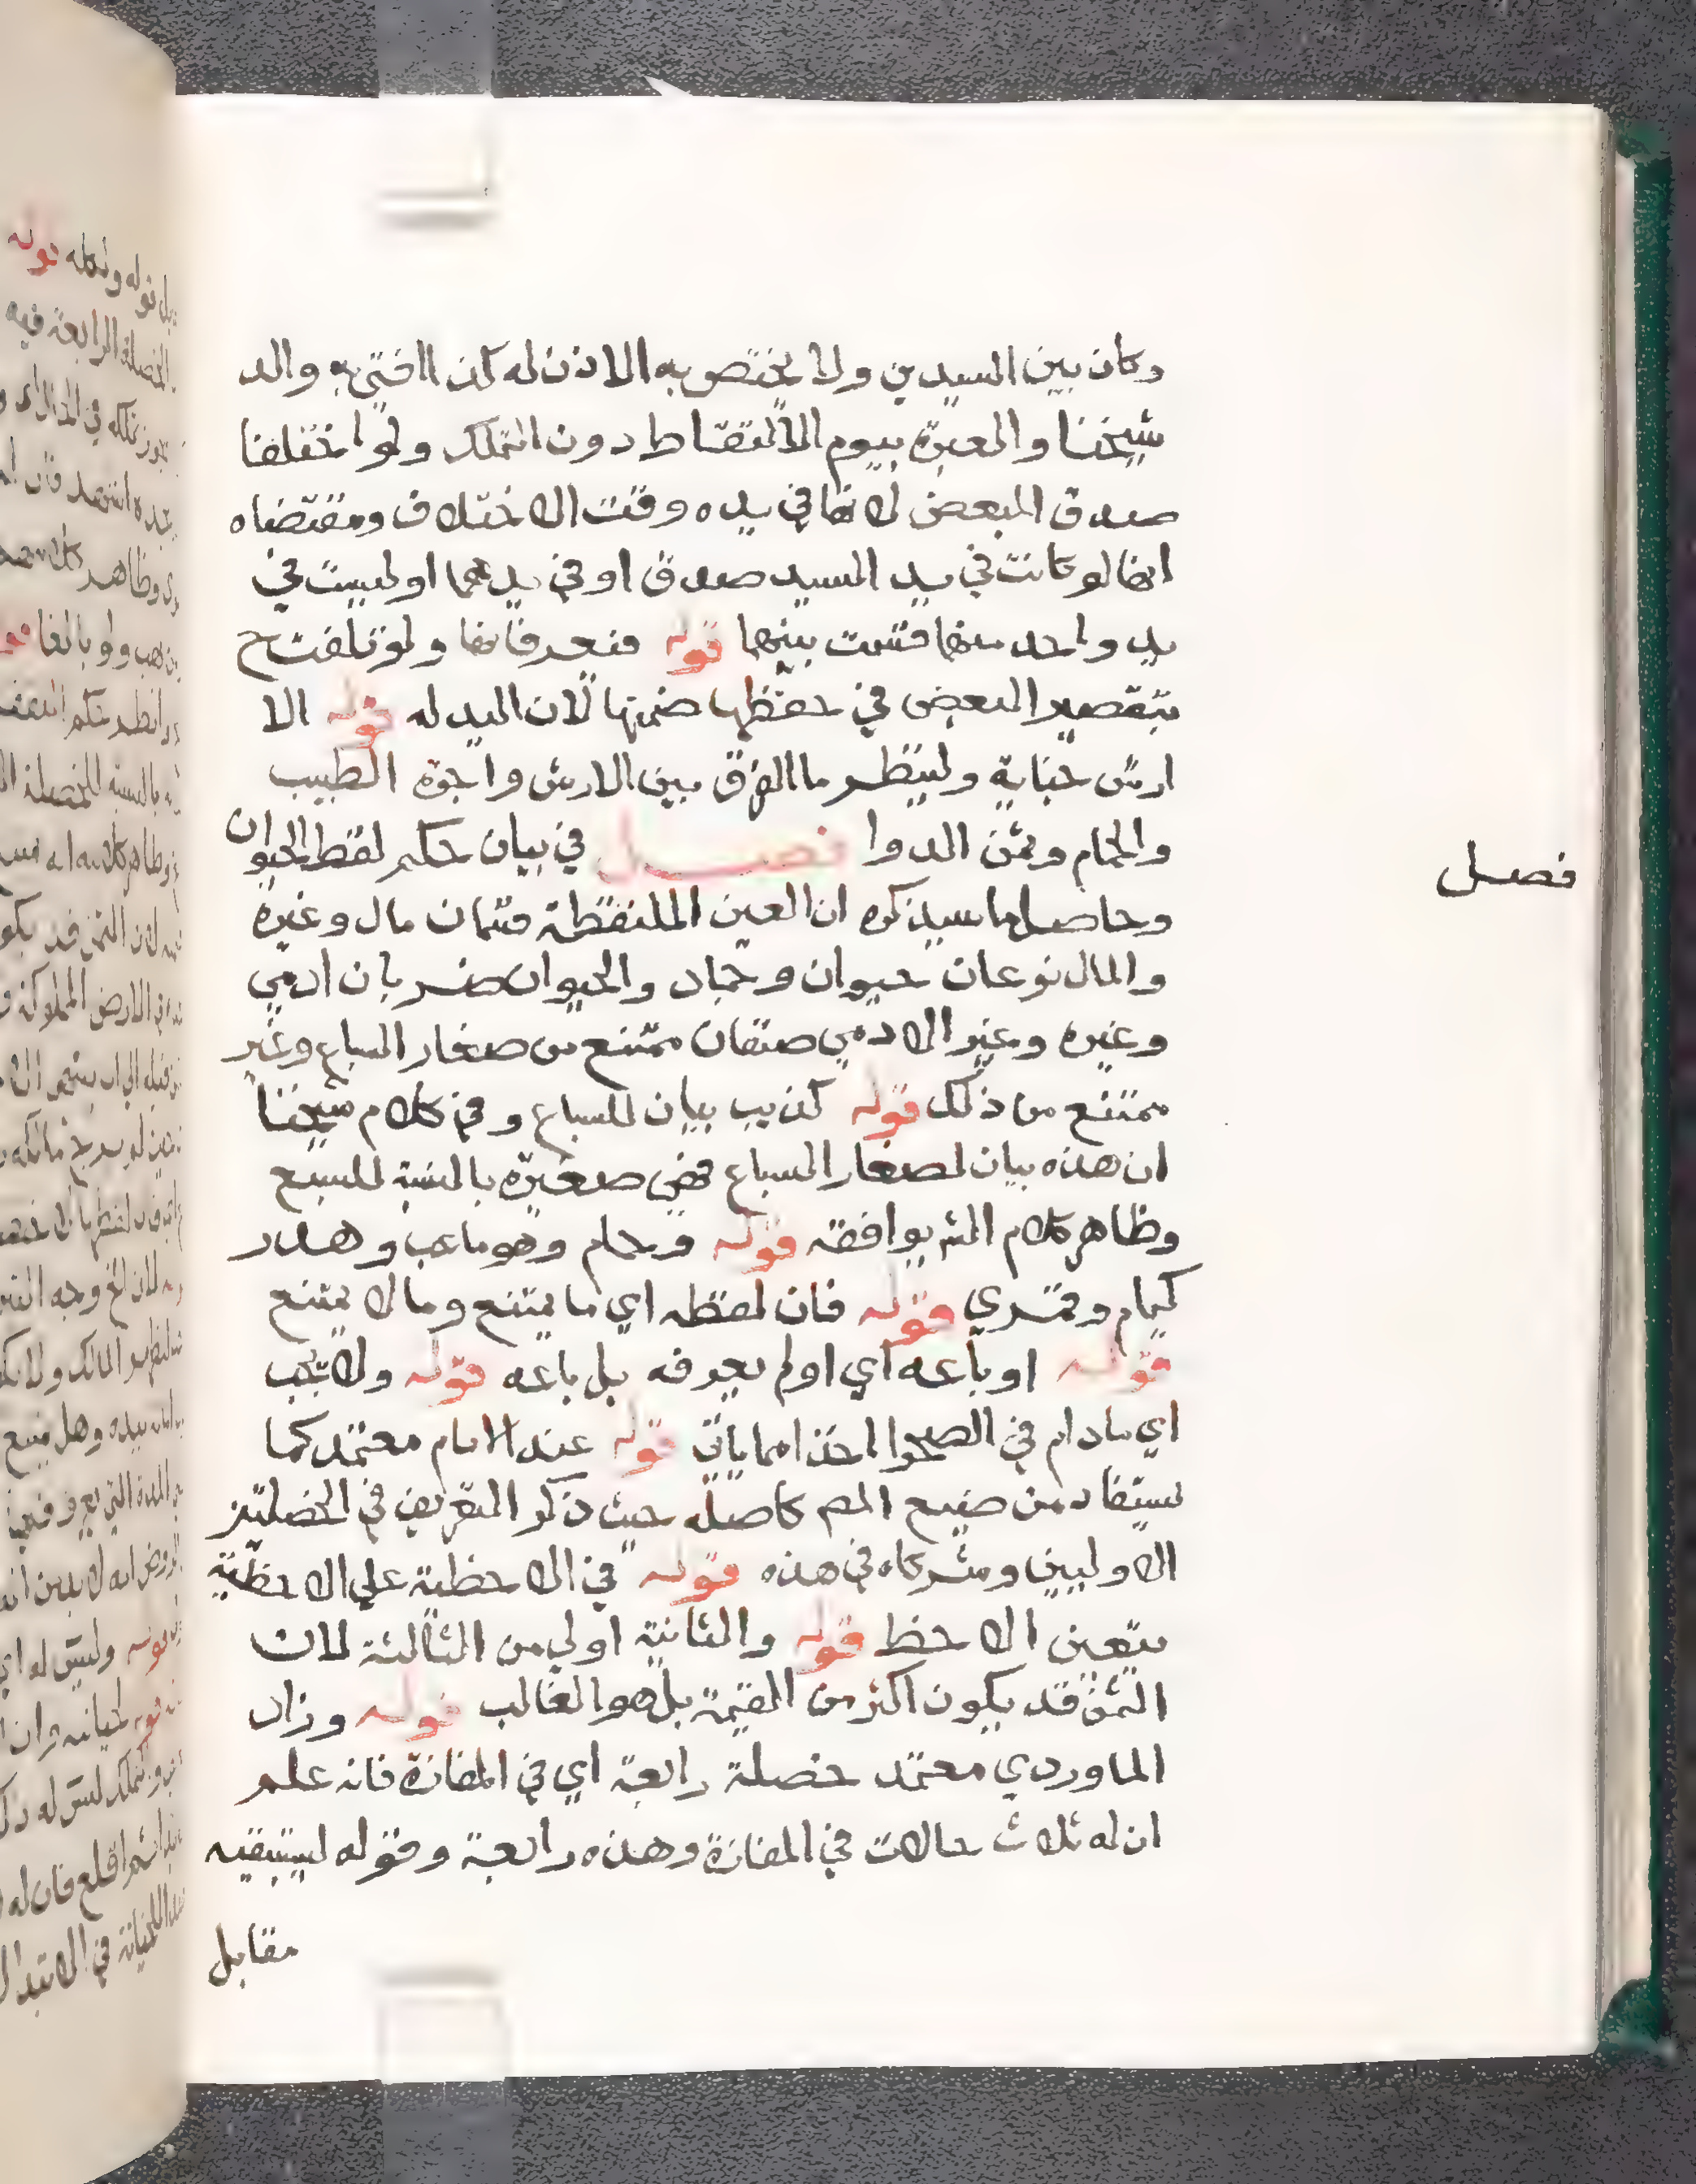 وكان بين السيدين ولا يختص به الاذن له كذا افتى به والد
شيخنا والعبرة بيوم الالتقاط دون التملك ولو اختلفا
صدق المبعض لانها في يده وقت الاختلاف ومقتضاه
انها لو كانت في يد السيد صدق او في يدهما او ليست في
يد واحد منهما قسمت بينهما قوله فتعرفانها ولو تلفت ح
بتقصير البعض في حفظها ضمنها لان اليد له قوله الا
ارش جناية ولينظر ما الفرق بين الارش واجرة الطبيب
والحمام وثمن الدوا فصل في بيان حكم لقط الحيوان
وحاصل ما سيذكره ان العين الملتقطة قسمان مال وغيره
والمال نوعان حيوان وجماد والحيوان ضربان ادمي
وغيره وغير الادمي صنفان ممتنع من صغار السباع وغير
ممتنع من ذلك قوله كذيب بيان للسباع وفي كلام شيخنا
ان هذه بيان لصغار السباع فهي صغيرة بالنسبة للسبع
وظاهر كلام المتن يوافقه قوله وحمام وهو ما عب وهدر
كيمام وقمري قوله فان لقطه اي ما يمتنع وما لا يمتنع
قوله او باعه اي اولم يعرفه بل باعه قوله ولا يجب
اي ما دام في الصحرا اخذا مما ياتي قوله عند الامام معتمد كما
يستفاد من صنيع المص كاصله حيث ذكر التعريف في الخصلتين
الاوليين وتركاه في هذه قوله في الاحظية علي الاحظية
يتعين الاحظ قوله والثانية اولي من الثالثة لان
الثمن قد يكون اكثر من القيمة بل هو الغالب قوله وزاد
الماوردي معتمد خصلة رابعة اي في المفازة فانه علم
ان له ثلاث حالات في المفازة وهذه رابعة وقوله ليستبقيه
مقابل
فصل